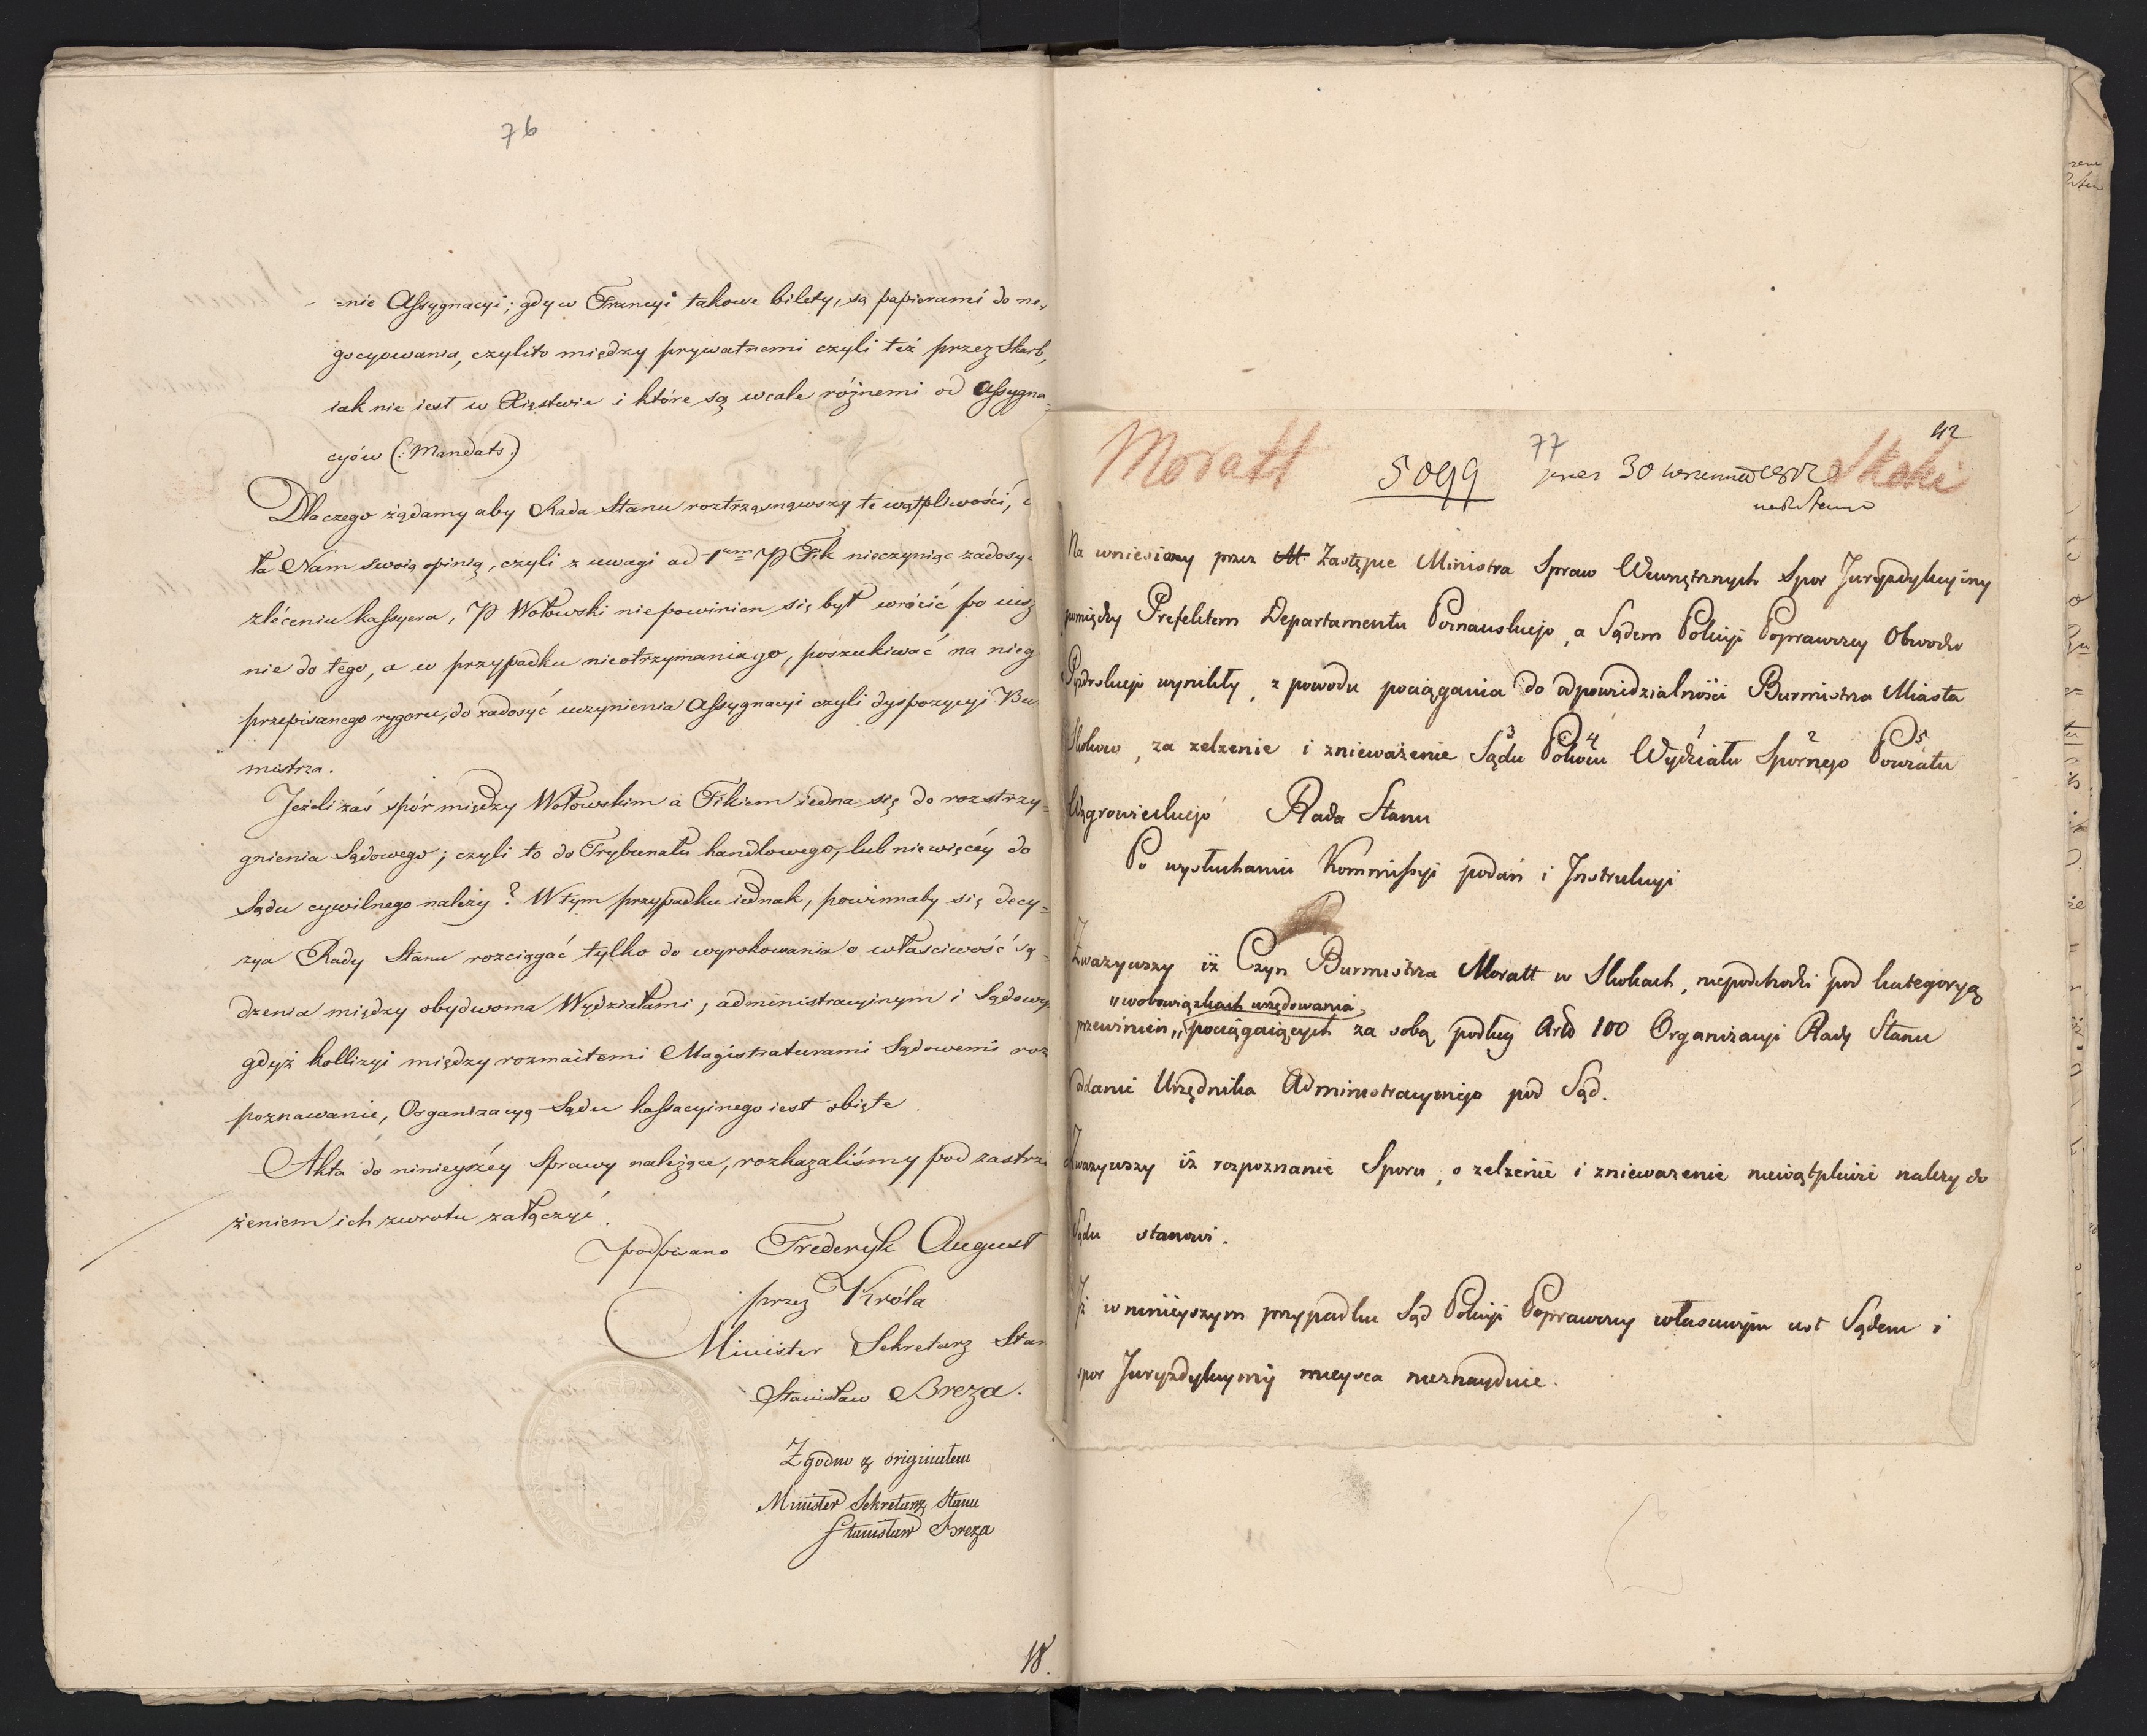 76
=nie Assygnacyi; gdy w Francyi takowe bilety, są papierami do ne,
gocyowania, czylito między prywatnemi czyli też przez Skarb,
iak nie iest w Xięstwie i które są wcale różnemi od Assygna=
cyów (: Mandats:)
Dlaczego żądamy aby Rada Stanu roztrząsnąwszy te wątpliwości,
ła Nam swoią opinią, czyli z uwagi ad 1um P Fik nieczyniąc zadosyć
zléceniu kassyera, P Wołowski niepowinien się był wrócić po uisz
nie do tego, a w przypadku nieotrzymania go, poszukiwać na nieg
przepisanego rygoru, do zadosyć uczynienia Assygnacyi czyli dyspozycyi Bur
mistrza.
Jeżeli zaś spór między Wołowskim a Fikiem iedna się do rozstrzy=
gnienia Sądowego; czyli to do Trybunału handlowego, lub niewięcéy do
Sądu cywilnego należy? W tym przypadku iednak, powinnaby się decy=
zya Rady Stanu rozciągać tylko do wyrokowania o właściwość są=
dzenia między obydwoma Wydziałami, administracyinym i Sądowy
gdyż kollizyi między rozmaitemi Magistraturami Sądowemi roz
poznawanie, Organizacyą Sądu kassacyinego iest obięte.
Akta do ninieyszéy Sprawy należące, rozkazaliśmy pod zastrze
żeniem ich zwrotu załączyć.
podpisano Frederyk August
przez Króla
Minister Sekretarz Stan
Stanisław Breza.
Zgodno z originałem
Minister Sekretarz Stanu
Stanisław Breza
18.
Moratt 5099 77 42 Skoki
30
Na wniesiony przez M. Zastępce Ministra Spraw Wewnętrznych Spor Juryzdykcyiny
pomiędzy Prefektem Departamentu Poznanskiego, a Sądem Policyi Poprawczey Obwodu
Pyzdrskiego wynikły, z powodu pociągania do odpowidzialności Burmistrza Miasta
Skokow, za zelzenie i znieważenie Sądu 3 Pokoiu 4 Wydziału 1 Spornego 2 Powiatu 5
Wągrowieckiego Rada Stanu
Po wysłuchaniu Kommissyi podań i Instrukcyi
Zważywszy iż Czyn Burmistrza Moratt w Skokach, niepodchodzi pod kategoryą
"w obowiązkach urzędowania,
przewinień,, pociągaiących za sobą podług Artu 100 Organizacyi Rady Stanu
oddanie Urzędnika Administracyinego pod Sąd.
Zważywszy iż rozpoznanie Sporu, o zelzenie i znieważenie niewątpliwie należy do
Sądu stanowi.
Iż w ninieyszym przypadku Sąd Policyi Poprawczey właściwym iest Sądem i
spor Juryzdykcyiny mieysca nieznayduie.